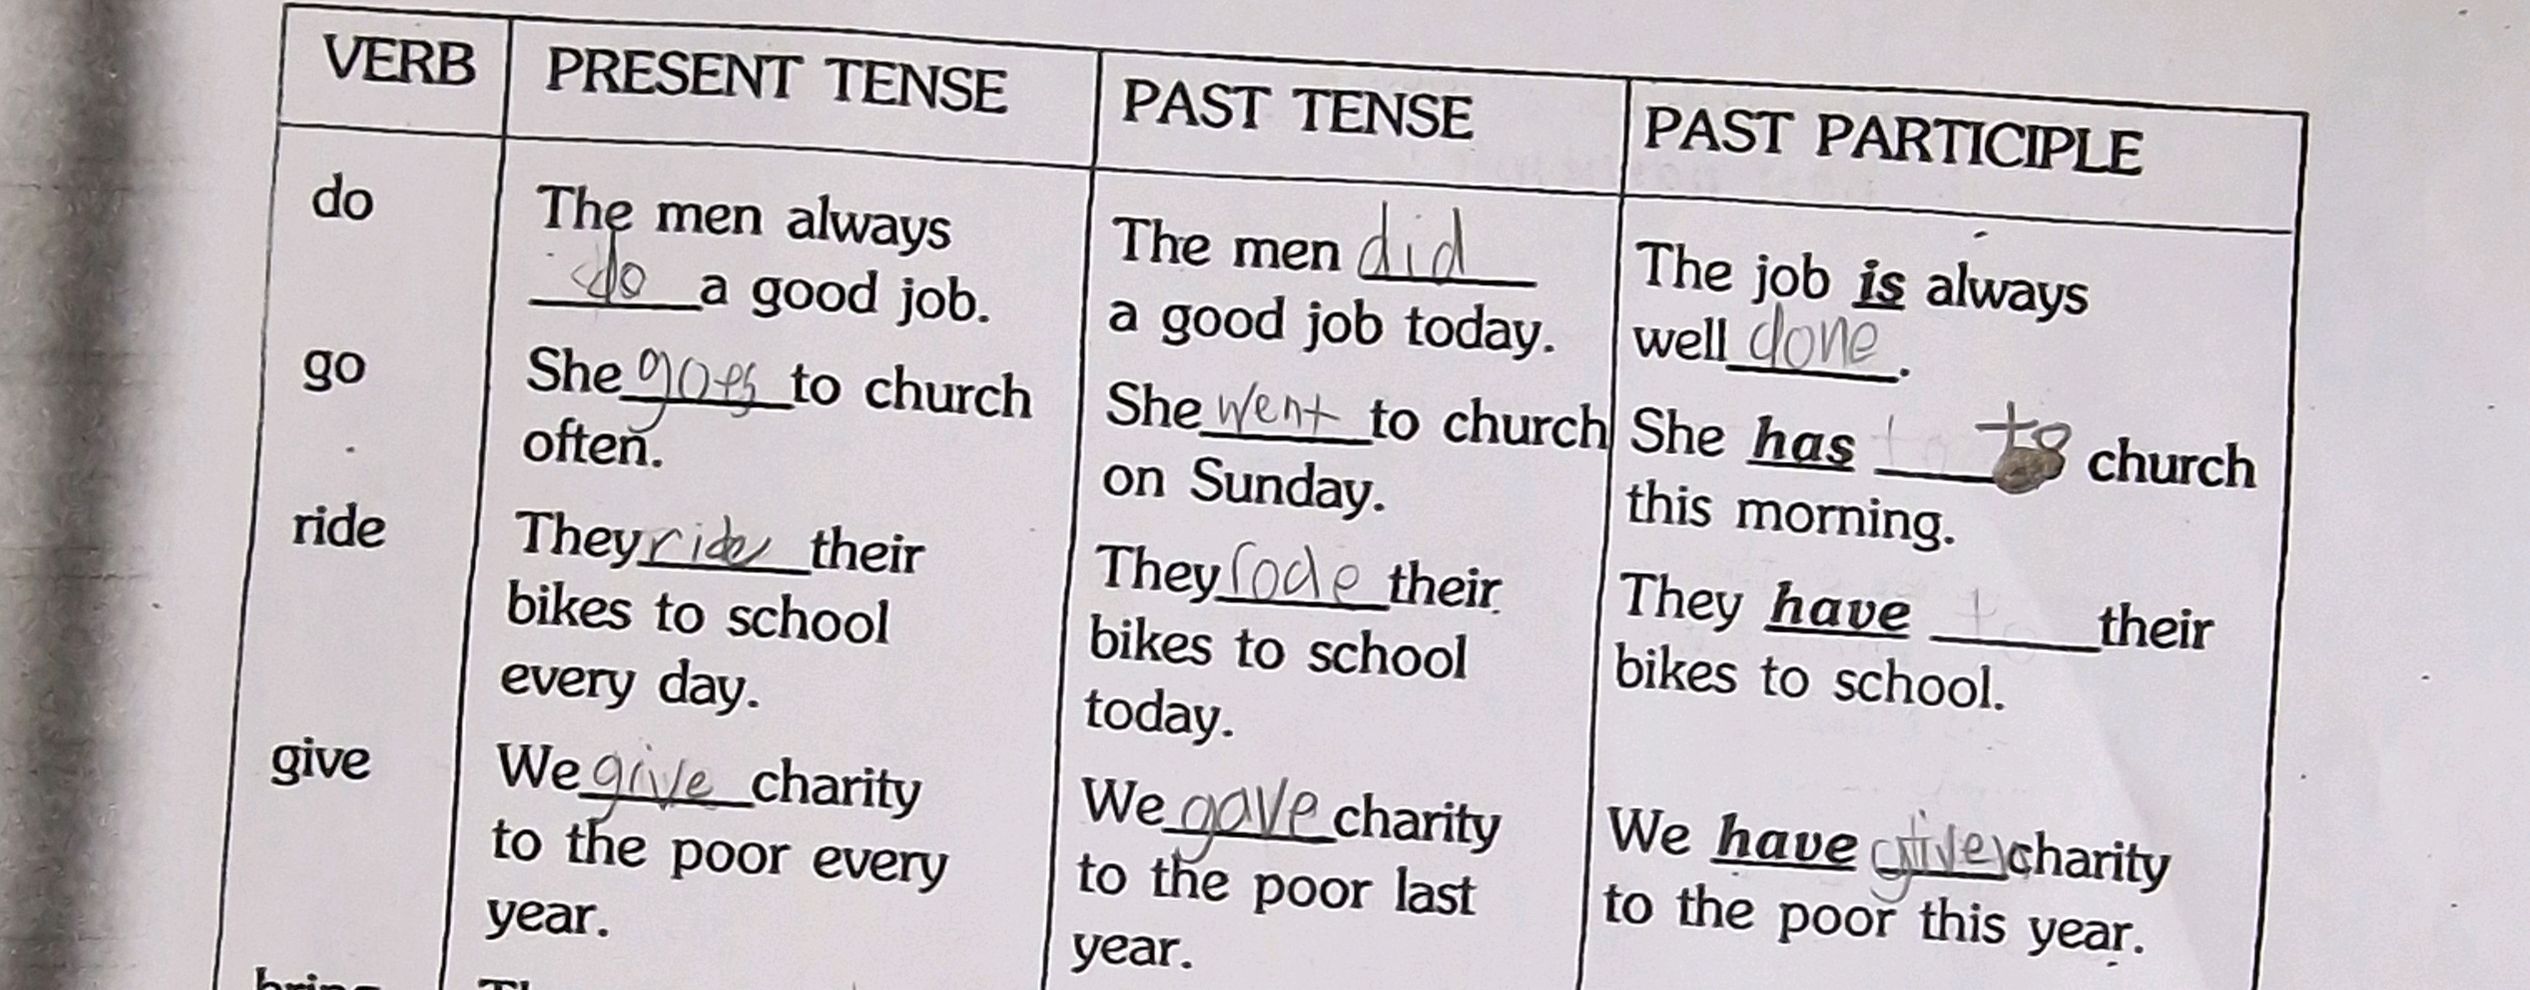 VERB PRESENT TENSE PAST TENSE PAST PARTICIPLE
do
The men always
do a good job.
The men did
a good job today.
The job is always
well done.
go
She goes to church
often.
She went to church
on Sunday.
She has to church
this morning.
ride
They ride their
bikes to school
every day.
They rode their
bikes to school
today.
They have their
bikes to school.
give
We give charity
to the poor every
year.
We gave charity
to the poor last
year.
We have charity
to the poor this year.